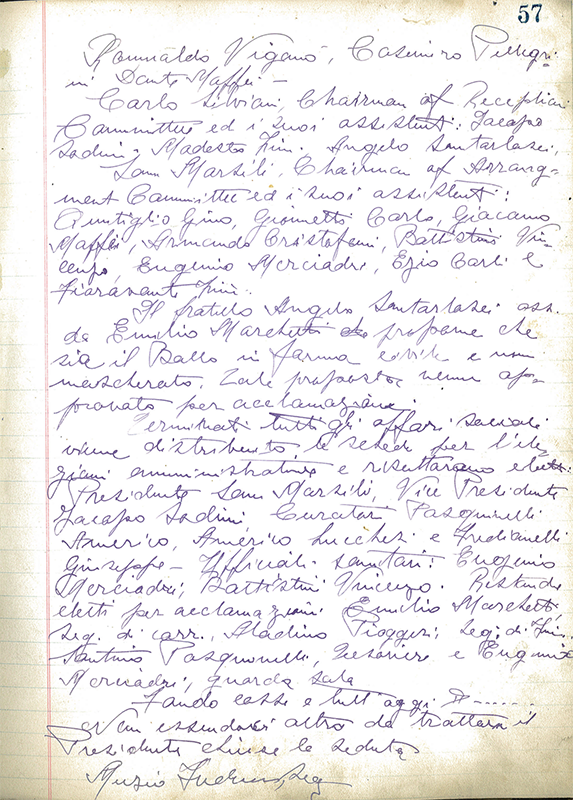 57
Romualdo Viganò, Casimiro Pellegri-
ni Dante Maffei -
Carlo Silviani, Chairman of Reception
Committee ed i suoi assistenti: Jacapo
Sodini - Modesto Fini. Angelo Santarlasci,
Sam Marsili, Chairman of Arrang-
ment Committee ed i suoi assistenti:
Gino, Giannetti Carlo, Giacomo
Maffei, Armando Cristofani, Battistini Vin-
cenzo, Eugenio Merciadri, Ezio Carli e
Fioravante Fini.
Il fratello Angelo Santarlasci ass.
da Emilio Marchetti propone che
sia il Ballo in forma civile e non
mascherato. Tale proposta venne ap-
provata per acclamazione.
Terminati tutti gli affari sociali
viene distribuito le schede per l'ele-
zioni amministrative e risultarono eletti:
Presidente Sam Marsili, Vice Presidente
Jacapo Sodini, Curatori Pasquinelli
Americo, Americo Lucchesi e Fredianelli
Giuseppe - Ufficiali sanitari: Eugenio
Merciadri, Battistini Vincenzo. Restando
eletti per acclamazioni Emilio Marchetti
Seg. di corr., Pioggeri, Seg. di Fin.
Santino Pasquinelli, Tesoriere e Eugenio
Merciadri, guarda sala
Fondo cassa a tutt'oggi $-------
Non essendovi altro da trattare il
Presidente chiuse la seduta
Muzio Seg